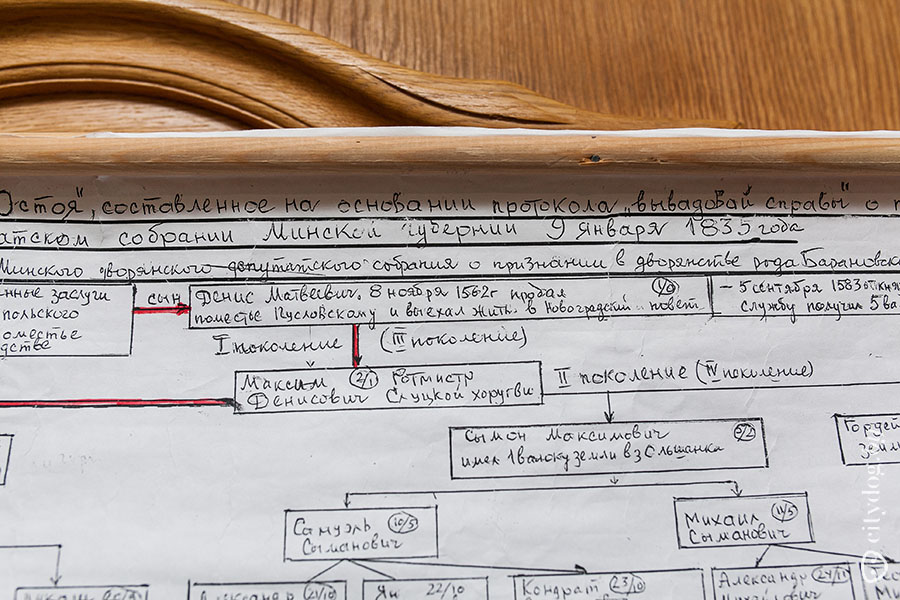 Остоя", составленное на основании протокола „вывадовой справы" о
атском собрании Минской губернии 9 января 1835 года
Минского дворянского депутатского собрания о признании в дворянстве рода Барановск
нные заслуги
польского
оместье
дстве
сын
Денис Матвеевич. 8 ноября 1562г продал 1/0
поместье Пусловскому и выехал жить в Новогрудский повет
– 5 сентября 1583
службу получил 5 ва
I поколение (III поколение)
Максим 2/1 Ротмистр
Денисович Слуцкой хоругви
II поколение (IV поколение)
Сымон Максимович 5/2
имел 1 валоку земли в з Ольшанка
Гордей
земл
Самуэль 10/5
Сыманович
Михаил 11/5
Сыманович
Александр 21/10
Ян 22/10
Кондрат 23/10
Александр 24/11
Михайлович
citydog.by